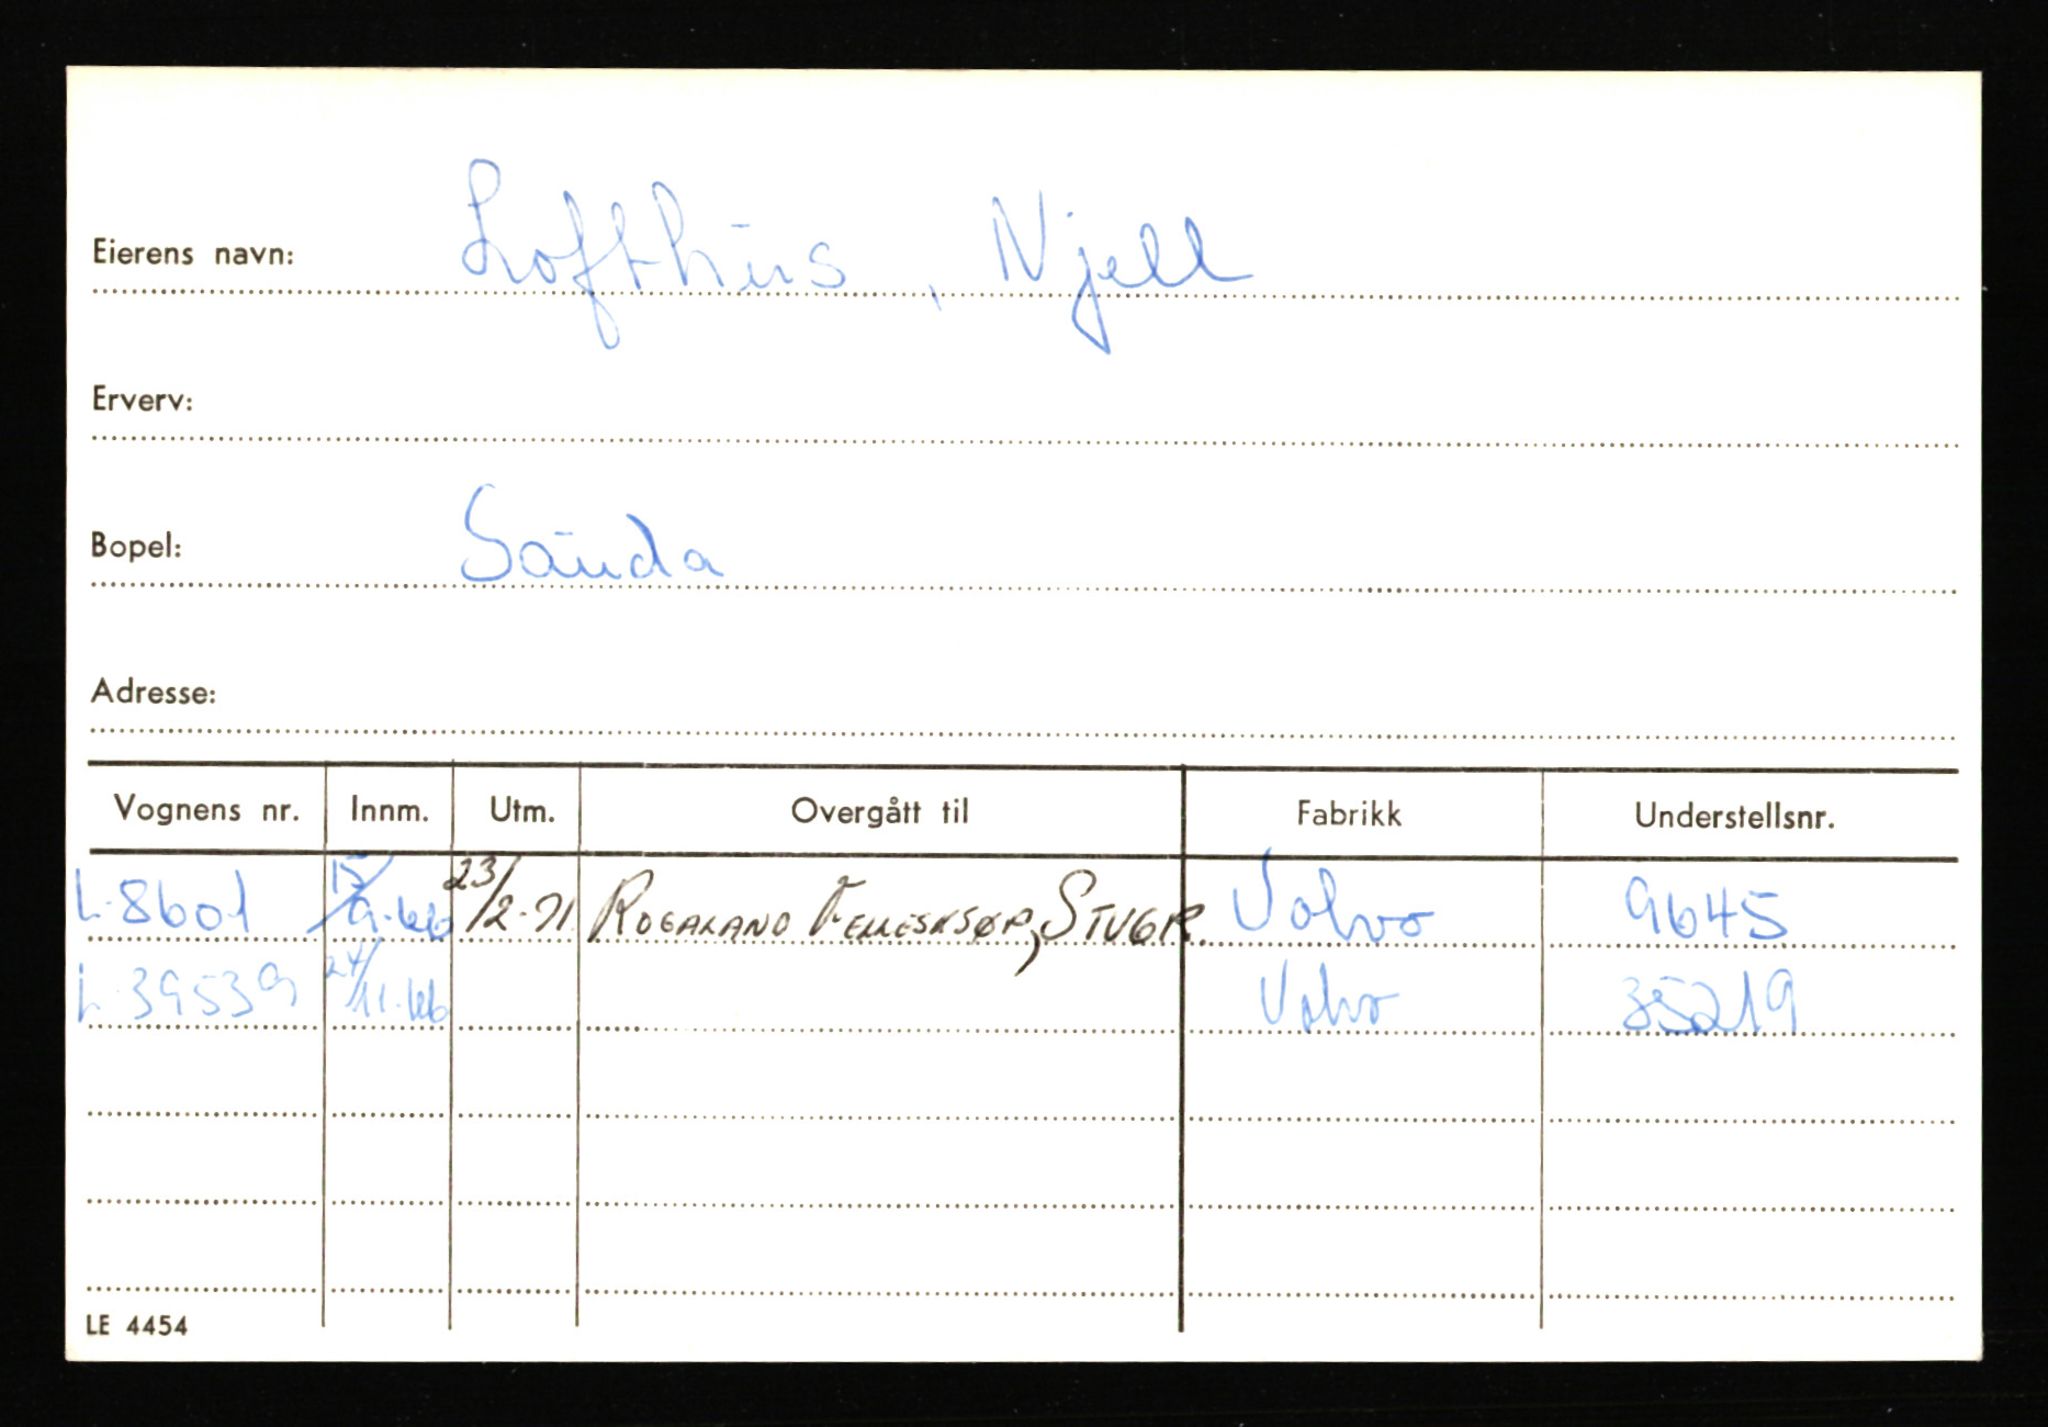 Eierens navn: Lofthus, Njell
Erverv:
Bopel: Sauda
Adresse:
Vognens nr. Innm. Utm. Overgått til Fabrikk Understellsnr.
L-8601 15/9-66 23/2-71 ROGALAND FELLESKSØP, STVGR. Volvo 9645
L-39539 24/11-66 Volvo 35219
LE 4454